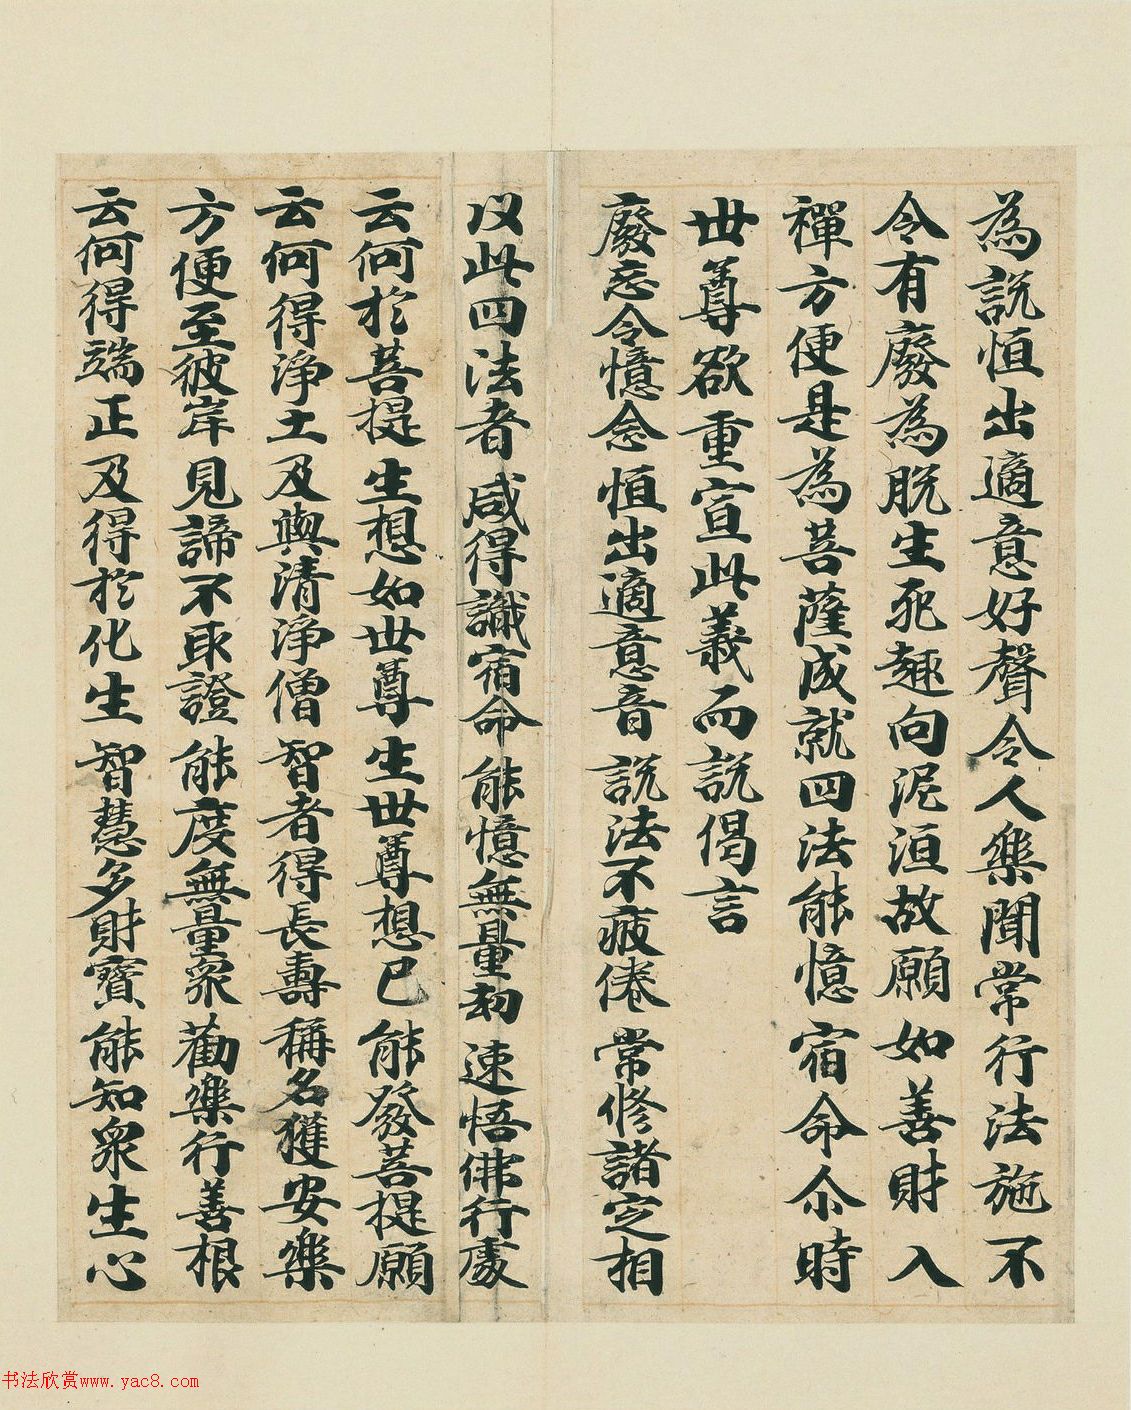 為説恒出適意好聲令人樂聞常行法施不
令有廢為脫生死趣向泥洹故願如善財入
禪方便是為菩薩成就四法能憶宿命尒時
世尊欲重宣此義而説偈言
廢忘令憶念 恒出適意音 説法不疲倦 常修諸定相
以此四法者 咸得識宿命 能憶無量劫 速悟佛行處
云何於菩提 生想如世尊 生世尊想已 能發菩提願
云何得淨土 及與清淨僧 智者得長壽 稱名獲安樂
方便至彼岸 見諦不取證 能度無量眾 勸樂行善根
云何得端正 及得於化生 智慧多財寶 能知眾生心
书法欣赏www.yac8.com